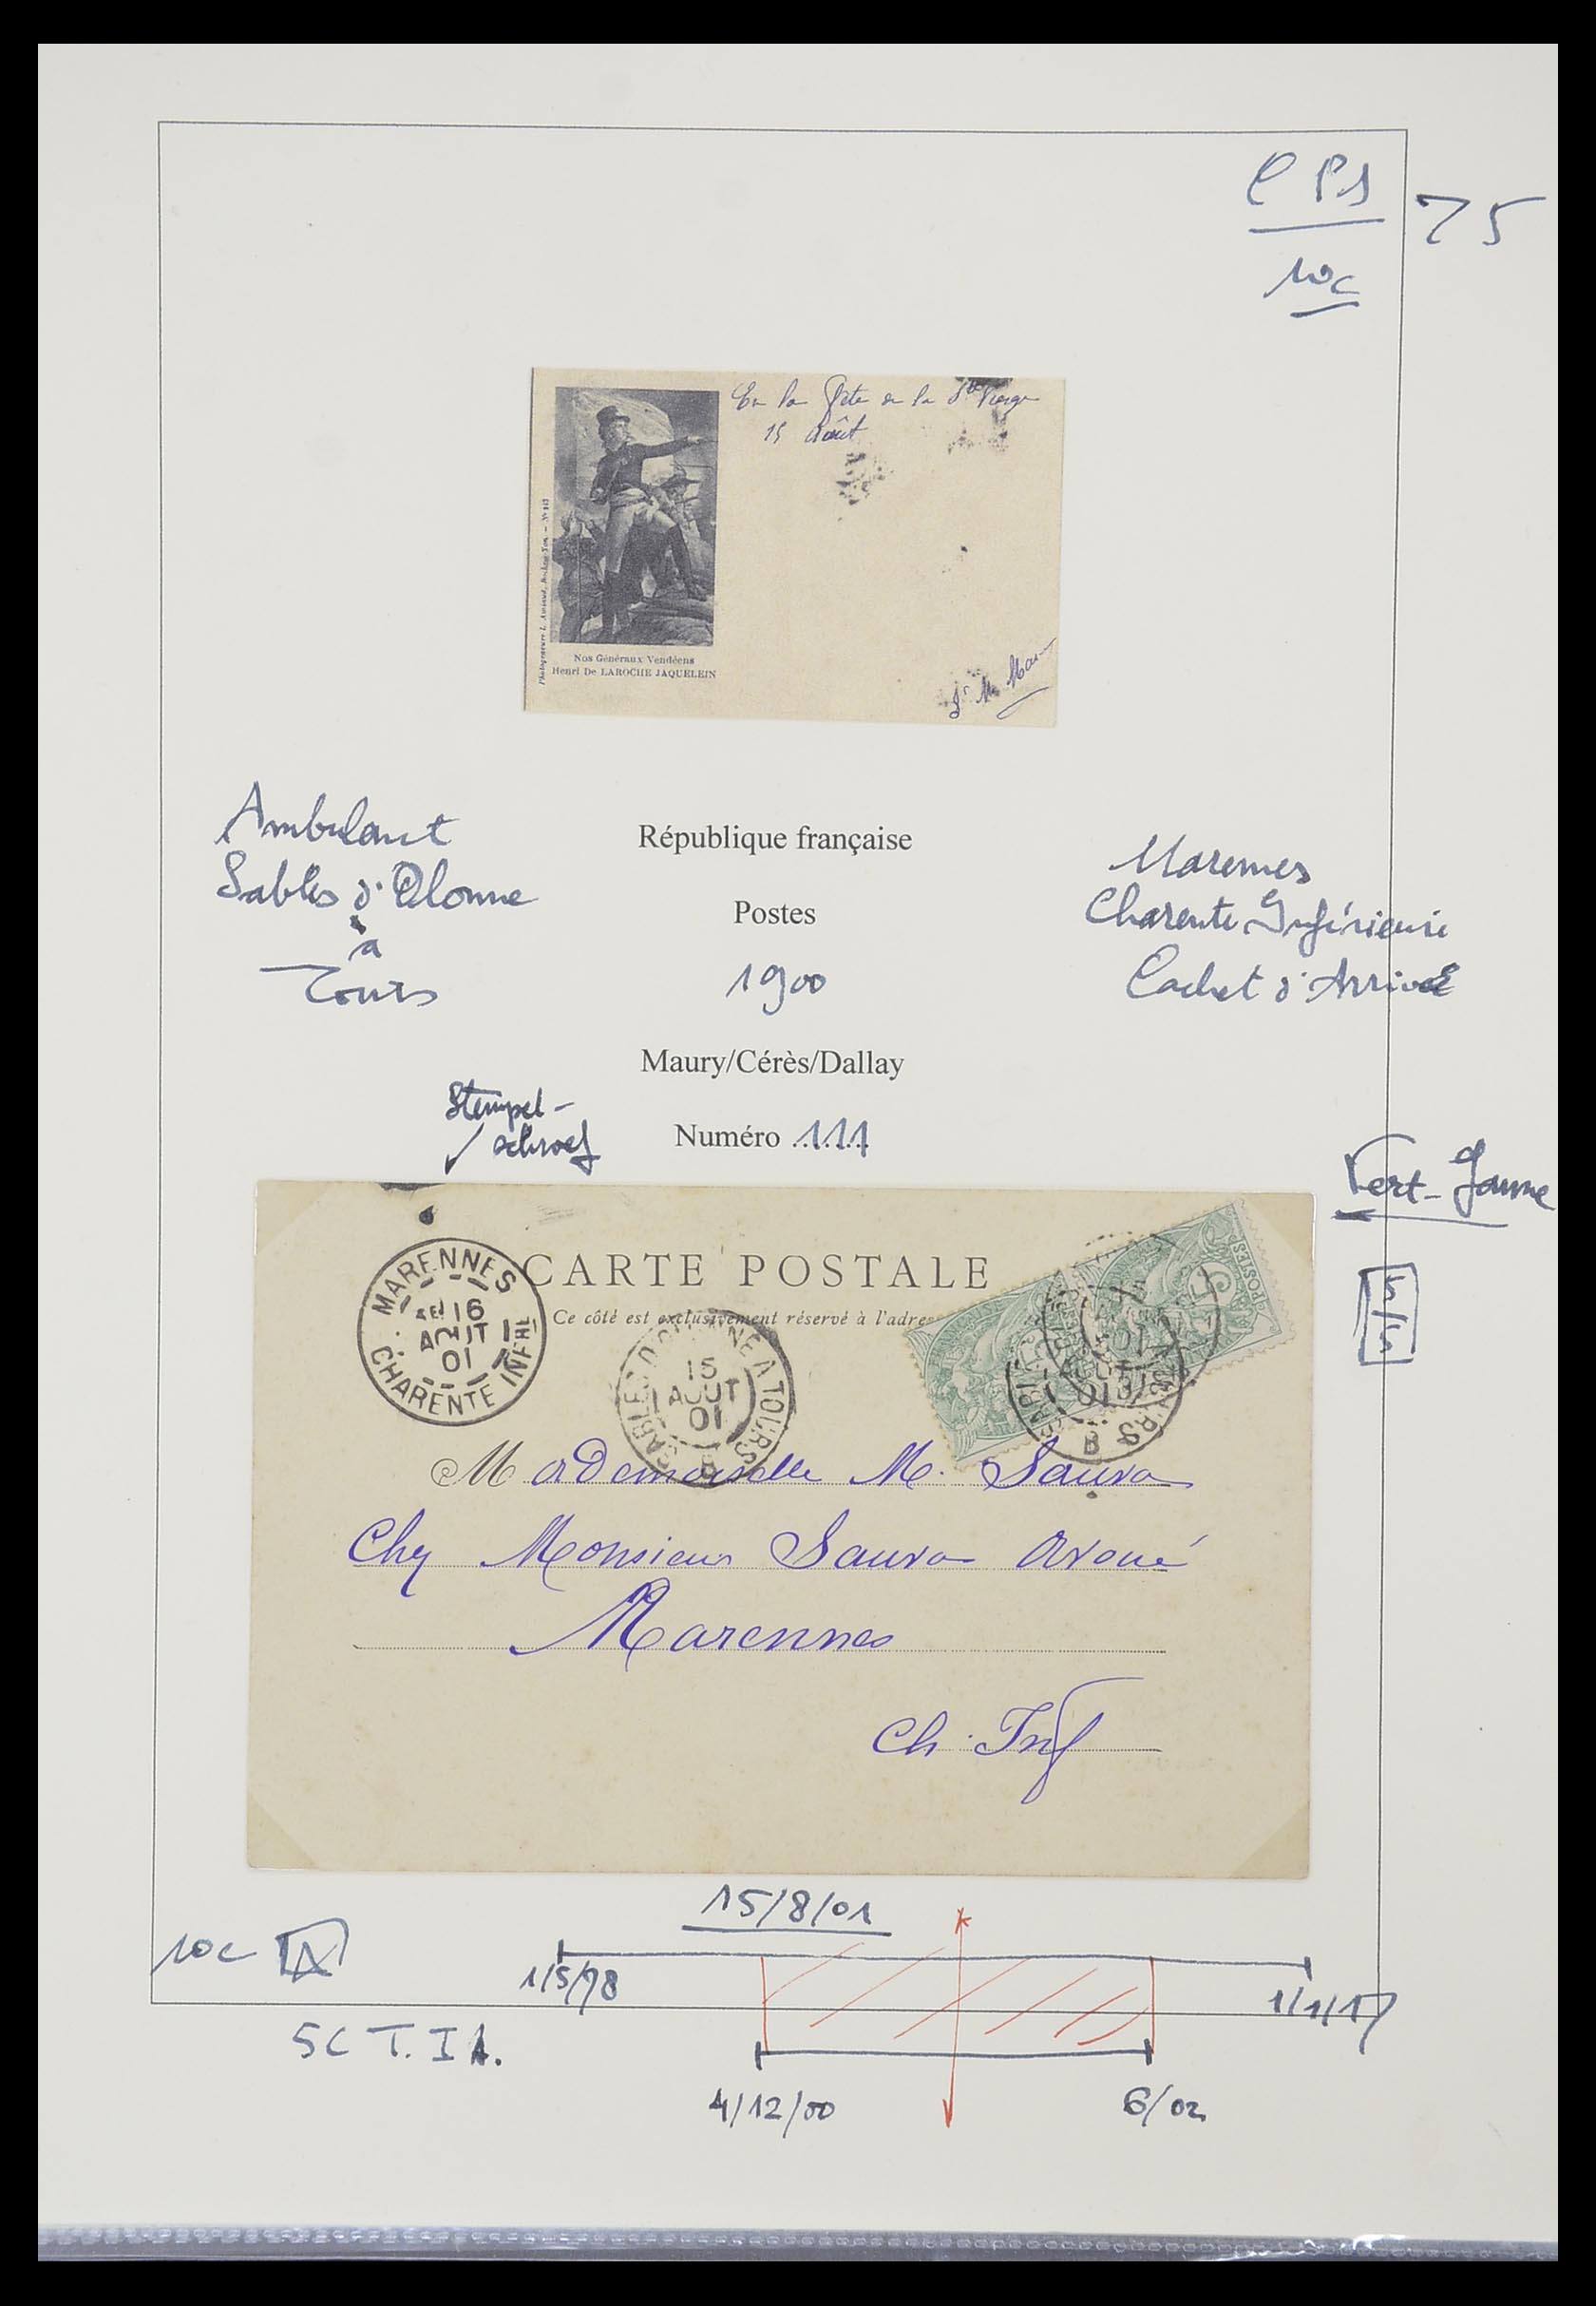 C P1
75
10c
En la fête de la Ste Vierge
15 Août
Nos Généraux Vendéens
Henri De LAROCHE JAQUELEIN
Ambulant
Sables d'Olonne
à
Tours
République française
Postes
1900
Maury/Cérès/Dallay
Numéro 111
Marennes
Charente Inférieure
Cachet d'Arrivée
Stempel-
schroef
Vert-Jaune
CARTE POSTALE
Ce côté est exclusivement réservé à l'adres
MARENNES
16
AOUT
01
CHARENTE INFRE
SABLES D'OLONNE A TOURS
15
AOUT
01
B
POSTES
01
B
Mademoiselle M. Sauva
Chez Monsieur Sauva avoué
Marennes
Ch. Inf
15/8/01
10c A
1/5/78
1/1/17
5C T.I A.
4/12/00
6/02